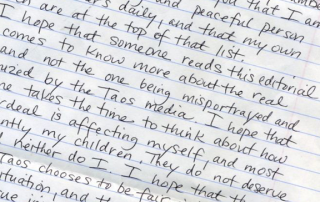 you that I am
daily, and peaceful person
en are at the top of that list. and that my own
I hope that someone reads this editorial
comes to know more about the real
and not the one being misportrayed and
uzed by the Taos media. I hope that
ne takes the time to think about how
rdeal is affecting myself, and most
ntly my children. They do not deserve
d neither do I. I hope that th
Taos chooses to be fair
ituation, and th